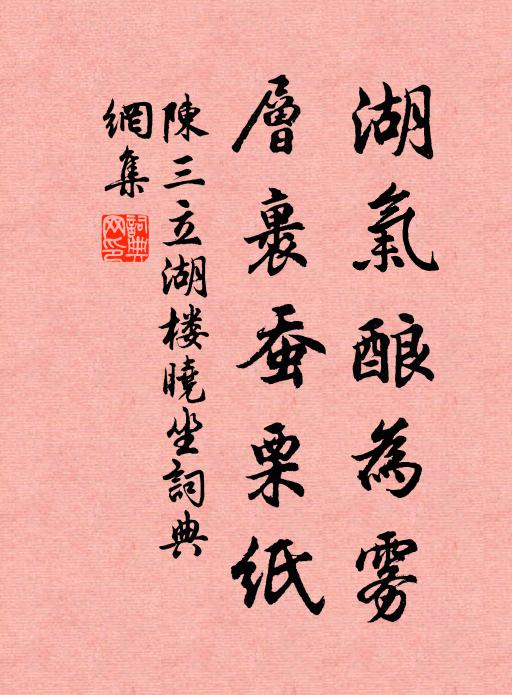 湖氣酿為雾
層裹蚕栗紙
陳三立湖楼曉坐詞典
網集
詞典网印